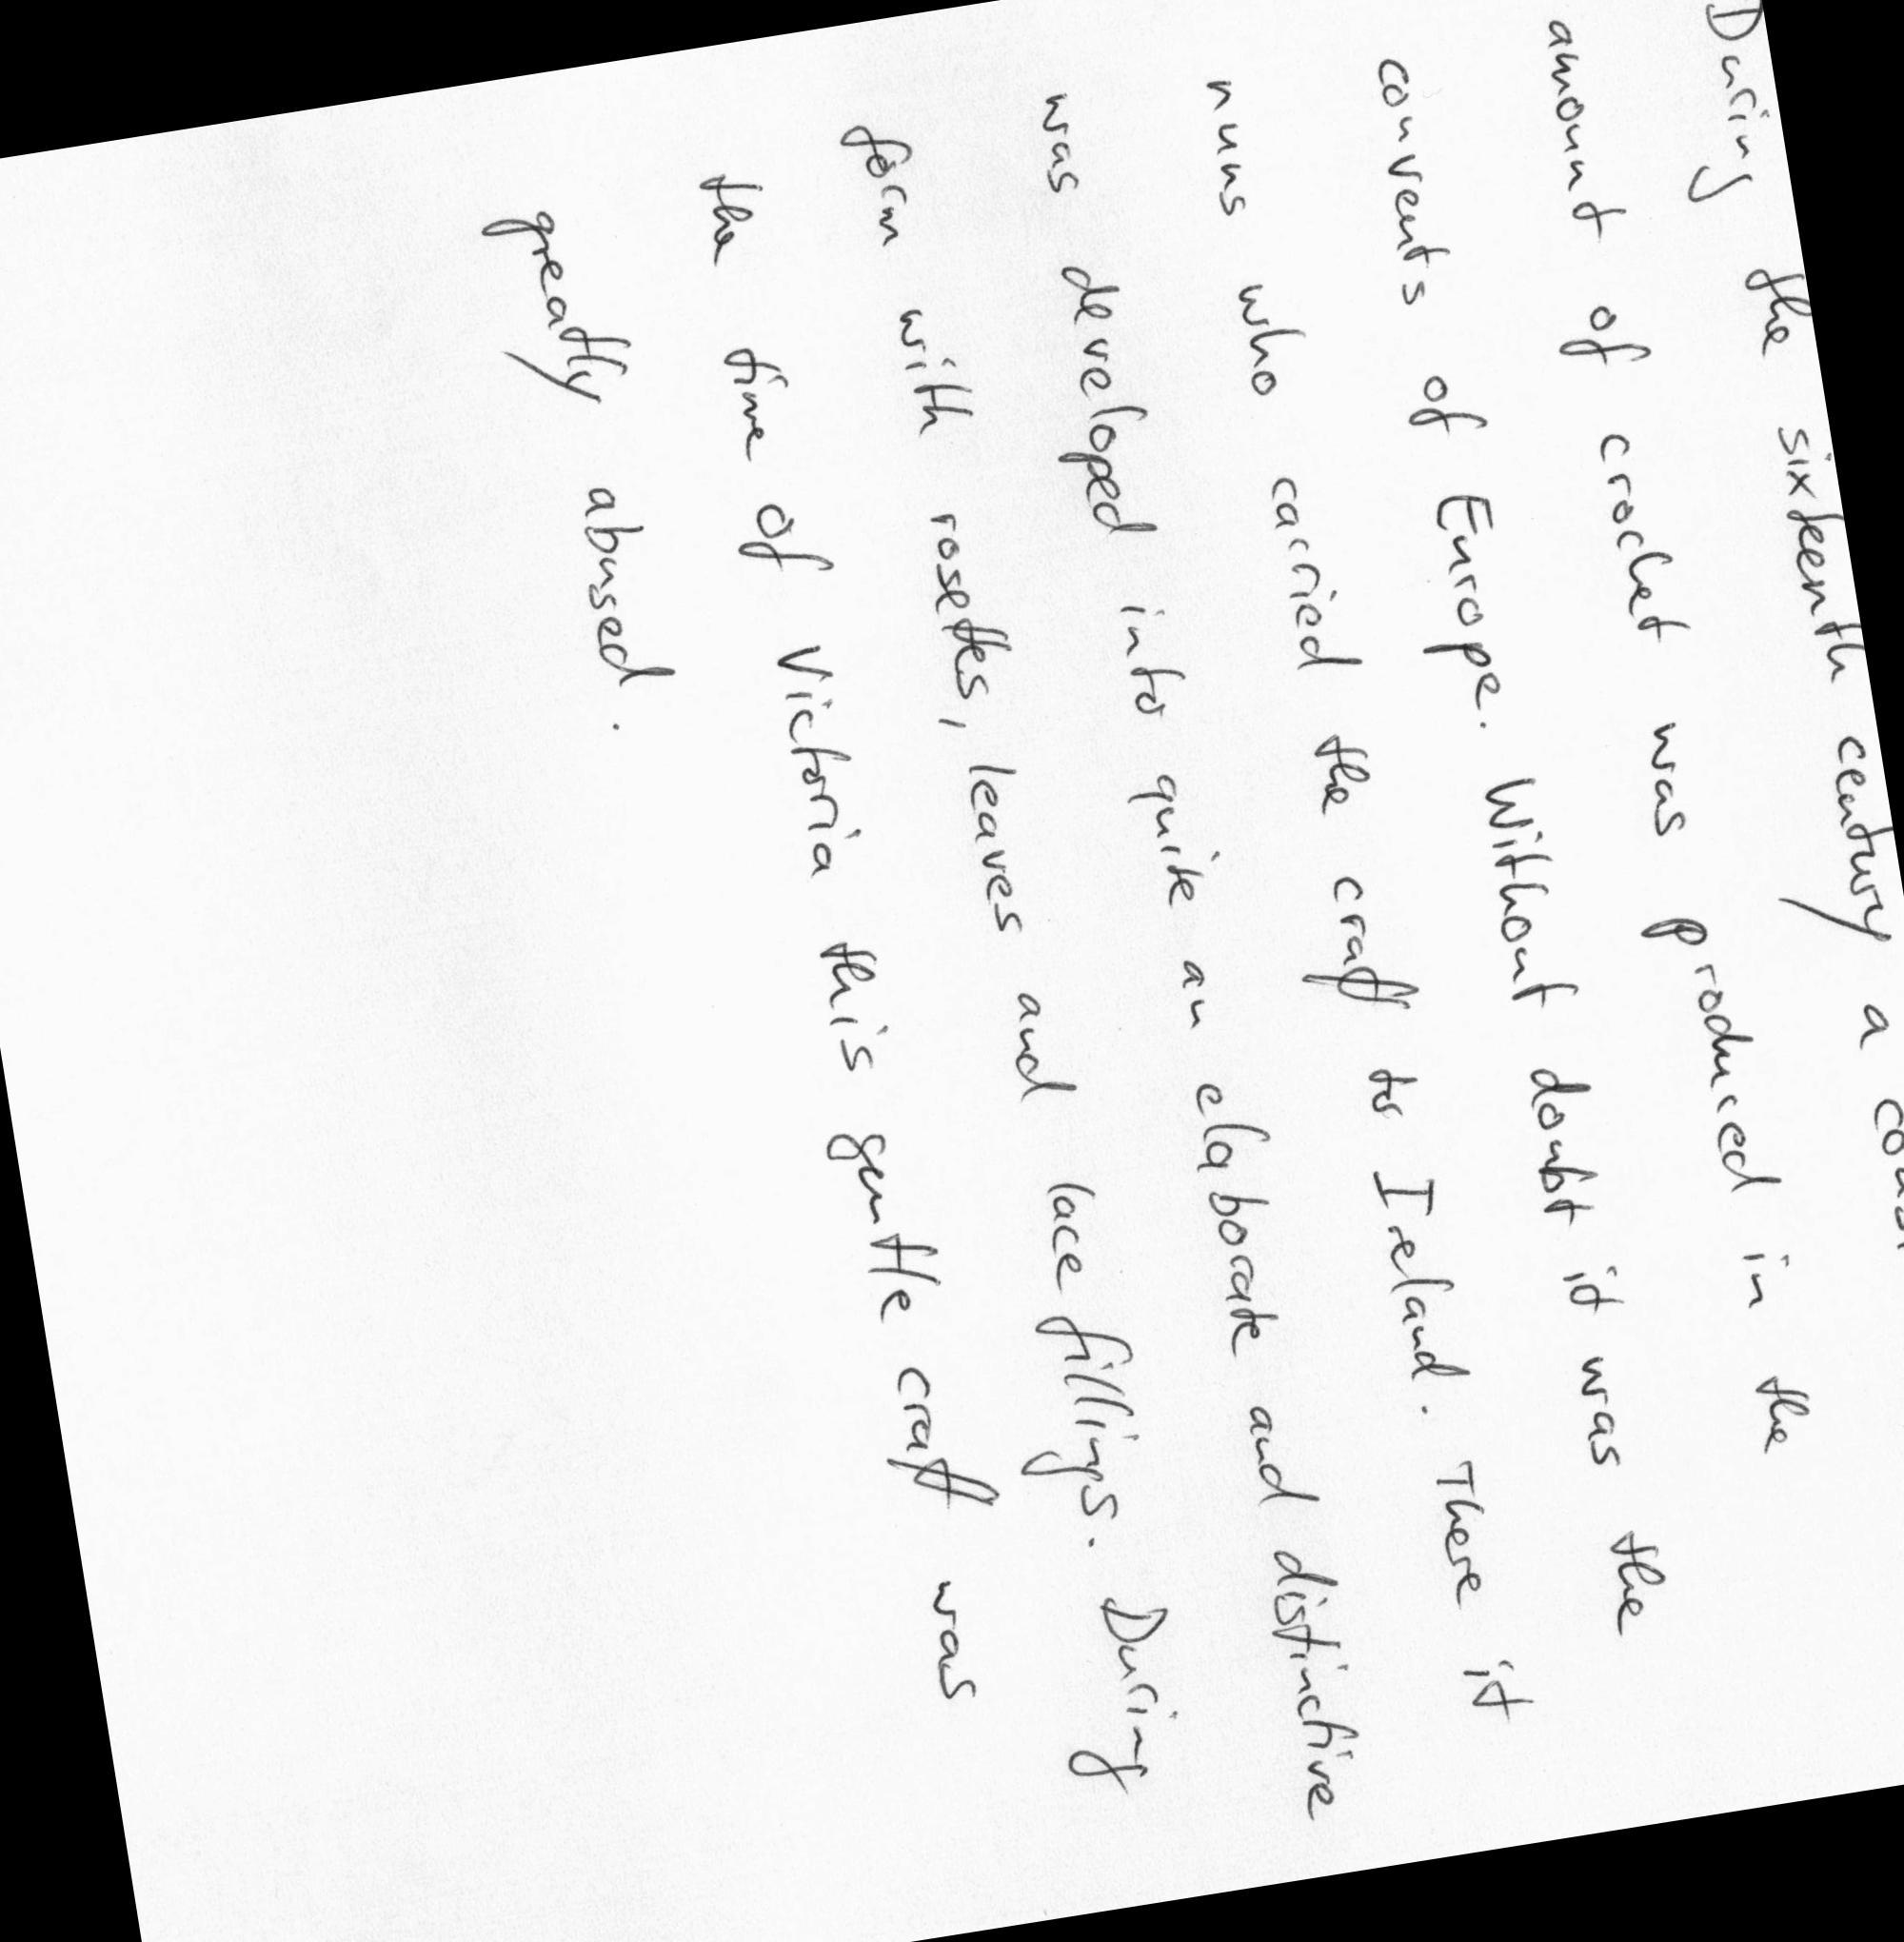 During the sixteenth century a
amount of crochet was produced in the
convents of Europe. Without doubt it was the
nuns who carried the craft to Ireland. There it
was developed into quite an elaborate and distinctive
form with rosettes, leaves and lace fillings. During
the time of Victoria this gentle craft was
greatly abused.